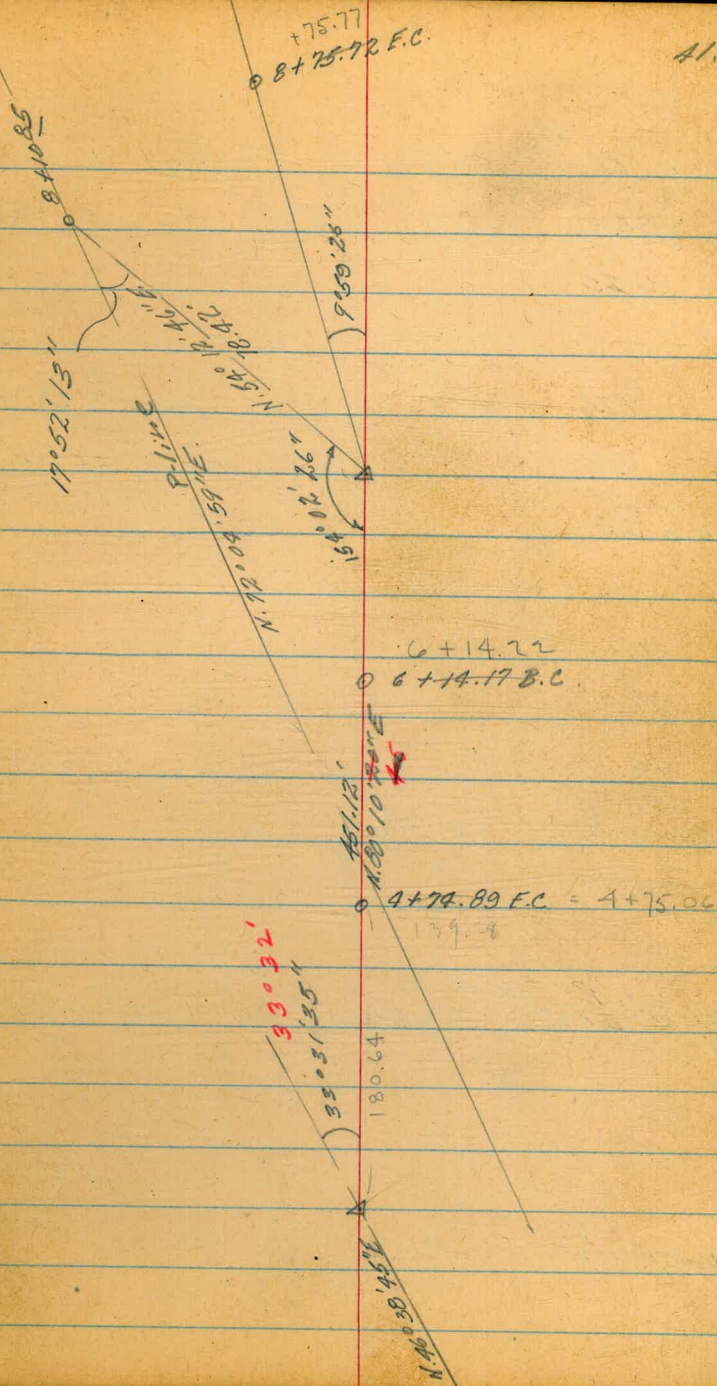 +75.77
8+75.72 E.C.
41.
8+10 85
9°59'26"
17°52'13"
N.54° 12' 46" E.
18.42'
P-line
N.72°04'59"E.
154°02'26"
6+14.22
6+14.17 B.C.
451.12'
N.80°10'20"E
45
4+74.89 E.C = 4+75.06
139.28
33°32'
33°31'35"
180.64
N.46°38'45"E